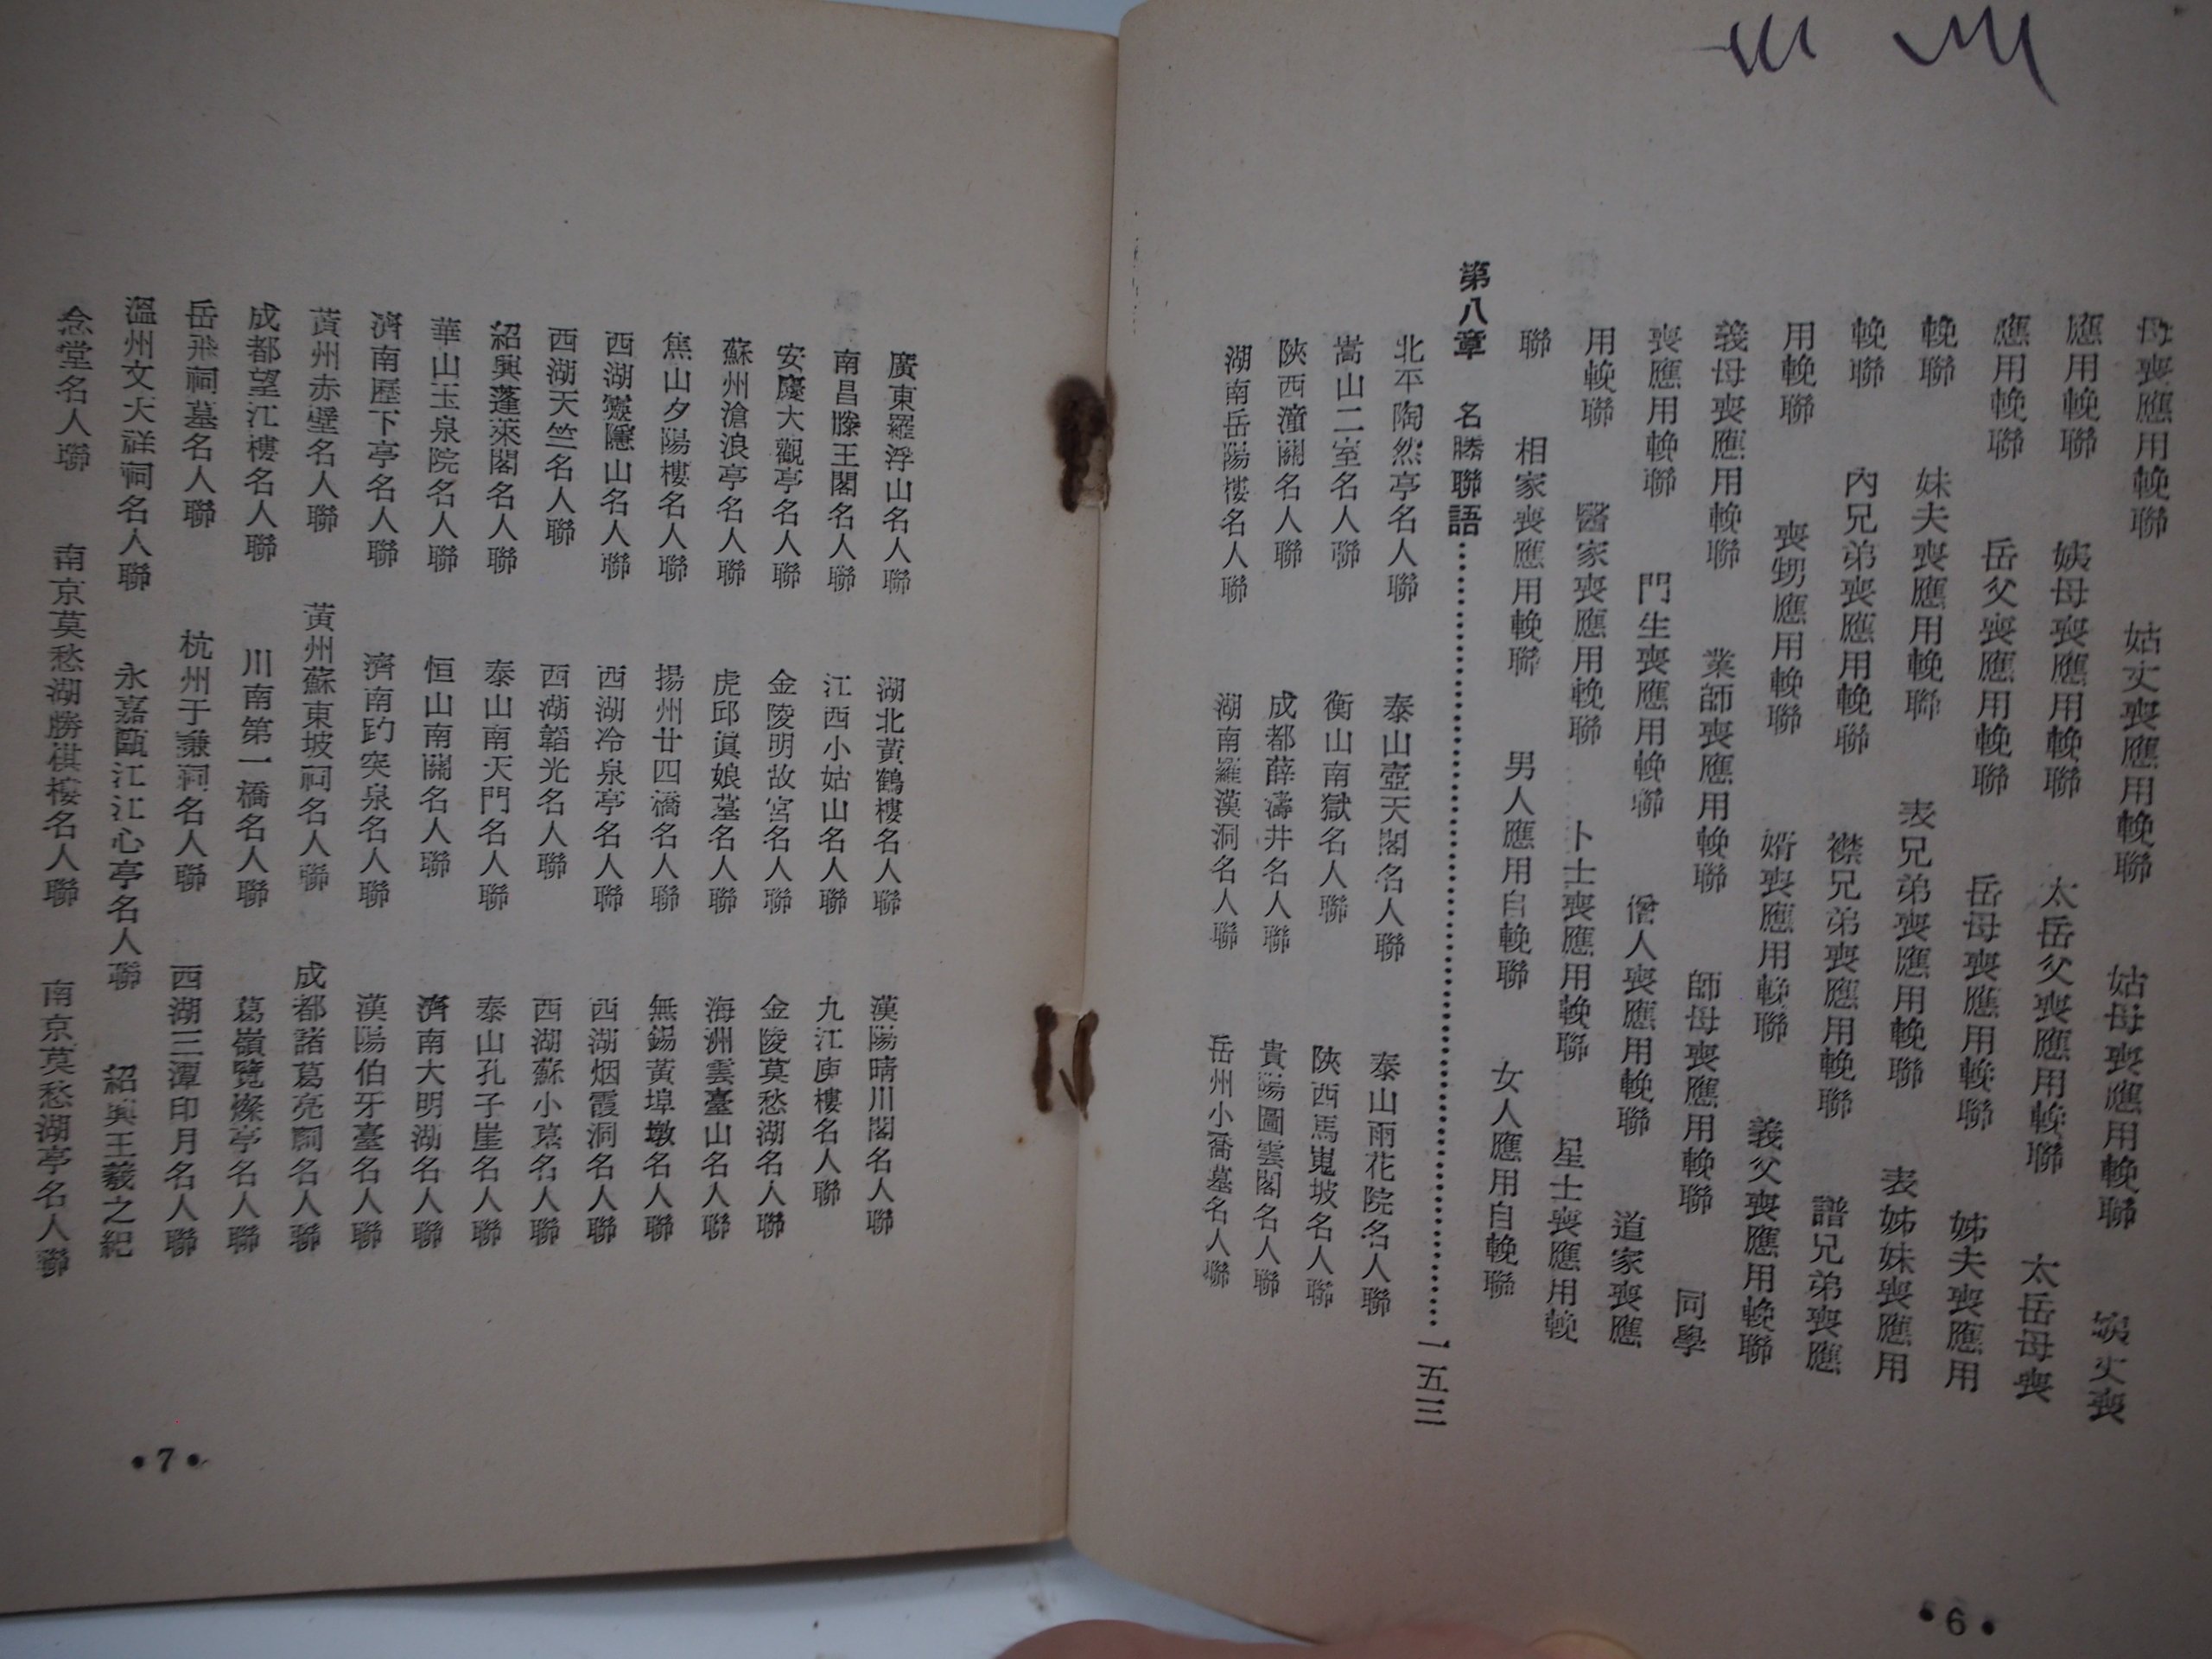 母喪應用輓聯　姑丈喪應用輓聯　姑母喪應用輓聯　姨丈喪
應用輓聯　姨母喪應用輓聯　太岳父喪應用輓聯　太岳母喪
應用輓聯　岳父喪應用輓聯　岳母喪應用輓聯　姊夫喪應用
輓聯　妹夫喪應用輓聯　表兄弟喪應用輓聯　表姊妹喪應用
輓聯　內兄弟喪應用輓聯　襟兄弟喪應用輓聯　譜兄弟喪應
用輓聯　喪甥應用輓聯　婿喪應用輓聯　義父喪應用輓聯
義母喪應用輓聯　業師喪應用輓聯　師母喪應用輓聯　同學
喪應用輓聯　門生喪應用輓聯　僧人喪應用輓聯　道家喪應
用輓聯　醫家喪應用輓聯　卜士喪應用輓聯　星士喪應用輓
聯　相家喪應用輓聯　男人應用自輓聯　女人應用自輓聯
第八章　名勝聯語⋯⋯⋯⋯⋯⋯⋯⋯⋯⋯一五三
北平陶然亭名人聯　泰山壺天閣名人聯　泰山雨花院名人聯
嵩山二室名人聯　衡山南獄名人聯　陝西馬嵬坡名人聯
陝西潼關名人聯　成都薛濤井名人聯　貴陽圖雲閣名人聯
湖南岳陽樓名人聯　湖南羅漢洞名人聯　岳州小喬墓名人聯
•6•
廣東羅浮山名人聯　湖北黃鶴樓名人聯　漢陽晴川閣名人聯
南昌滕王閣名人聯　江西小姑山名人聯　九江庾樓名人聯
安慶大觀亭名人聯　金陵明故宮名人聯　金陵莫愁湖名人聯
蘇州滄浪亭名人聯　虎邱眞娘墓名人聯　海洲雲臺山名人聯
焦山夕陽樓名人聯　揚州廿四橋名人聯　無錫黃埠墩名人聯
西湖靈隱山名人聯　西湖冷泉亭名人聯　西湖烟霞洞名人聯
西湖天竺名人聯　西湖韜光名人聯　西湖蘇小墓名人聯
紹興蓬萊閣名人聯　泰山南天門名人聯　泰山孔子崖名人聯
華山玉泉院名人聯　恒山南關名人聯　濟南大明湖名人聯
濟南歷下亭名人聯　濟南趵突泉名人聯　漢陽伯牙臺名人聯
黃州赤壁名人聯　黃州蘇東坡祠名人聯　成都諸葛亮祠名人聯
成都望江樓名人聯　川南第一橋名人聯　葛嶺覽燦亭名人聯
岳飛祠墓名人聯　杭州于謙祠名人聯　西湖三潭印月名人聯
溫州文天祥祠名人聯　永嘉甌江江心亭名人聯　紹興王羲之紀
念堂名人聯　南京莫愁湖勝棋樓名人聯　南京莫愁湖亭名人聯
•7•